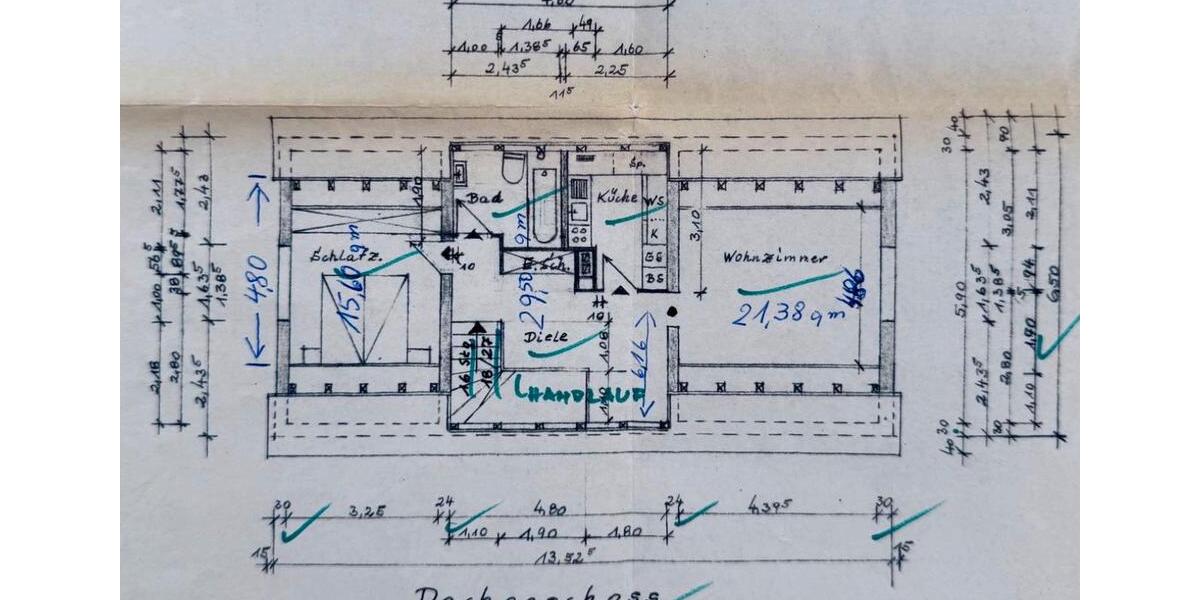 1,66 49
1,00 1,38⁵ 65 1,60
2,43⁵ 2,25
11⁵
Bad
Küche
Sp.
WS
K
GS
BS
1,90
3,10
Schlafz.
15,60 qm
4,80
10
E.Sch.
29,50 qm
Wohnzimmer
21,38 qm
4,86
Diele
10
1,08
6,16
16 Stg.
18/27
HANDLAUF
2,11 1,77⁵ 2,43
56⁵ 89⁵
1,00 38 1,63⁵ 1,38⁵
2,18 2,80 2,43⁵
40 30 90
2,43 3,05 2,11
5,90 1,63⁵ 1,38⁵ 94 6,50
5
1,90
2,43⁵ 2,80 1,10
30 30
40
30 3,25 24 4,80 24 4,39⁵ 30
1,10 1,90 1,80
15 13,52⁵ 15
Dachgeschoss